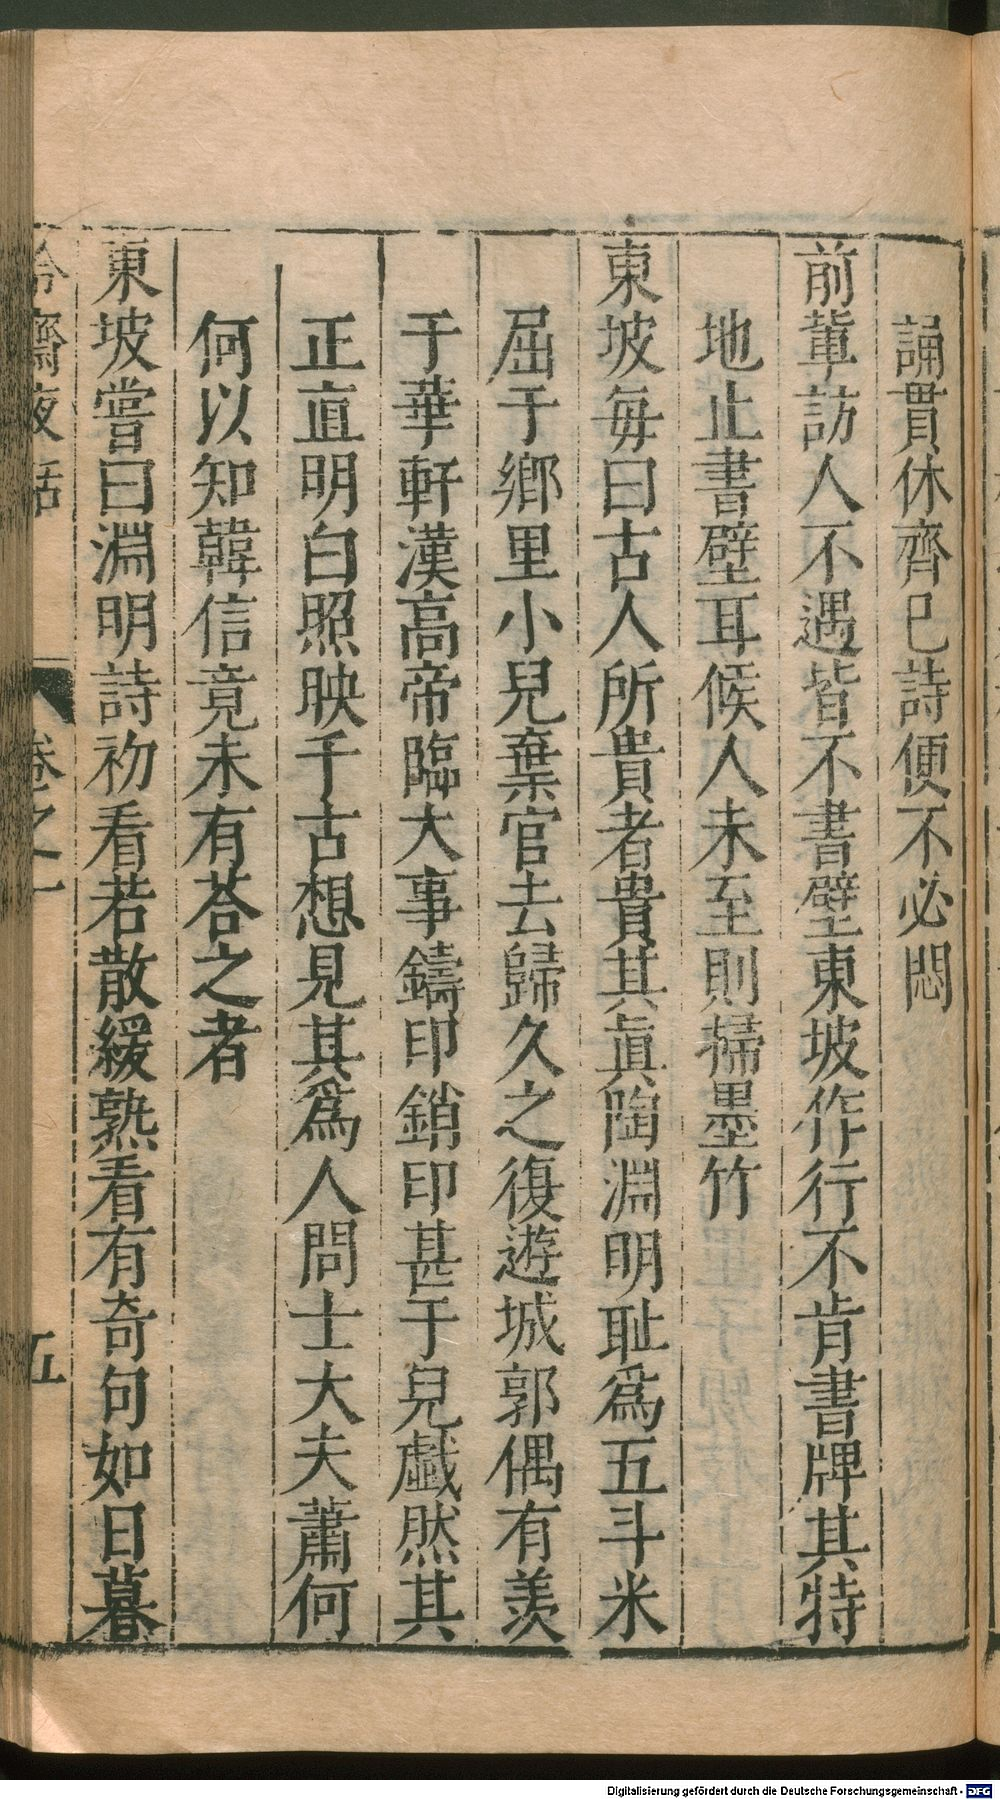 誦貫休齊巳詩便不必悶
前軰訪人不遇皆不書壁東坡作行不肯書牌其特
地止書壁耳候人未至則掃墨竹
東坡每曰古人所貴者貴其眞陶淵明恥爲五斗米
屈于鄉里小兒棄官去歸久之復遊城郭偶有羨
于華軒漢高帝臨大事鑄印銷印甚于兒戲然其
正直明白照映千古想見其爲人問士大夫蕭何
何以知韓信竟未有荅之者
東坡嘗曰淵明詩初看若散緩熟看有奇句如日暮
冷齋夜話 卷之一 五
Digitalisierung gefördert durch die Deutsche Forschungsgemeinschaft - DFG